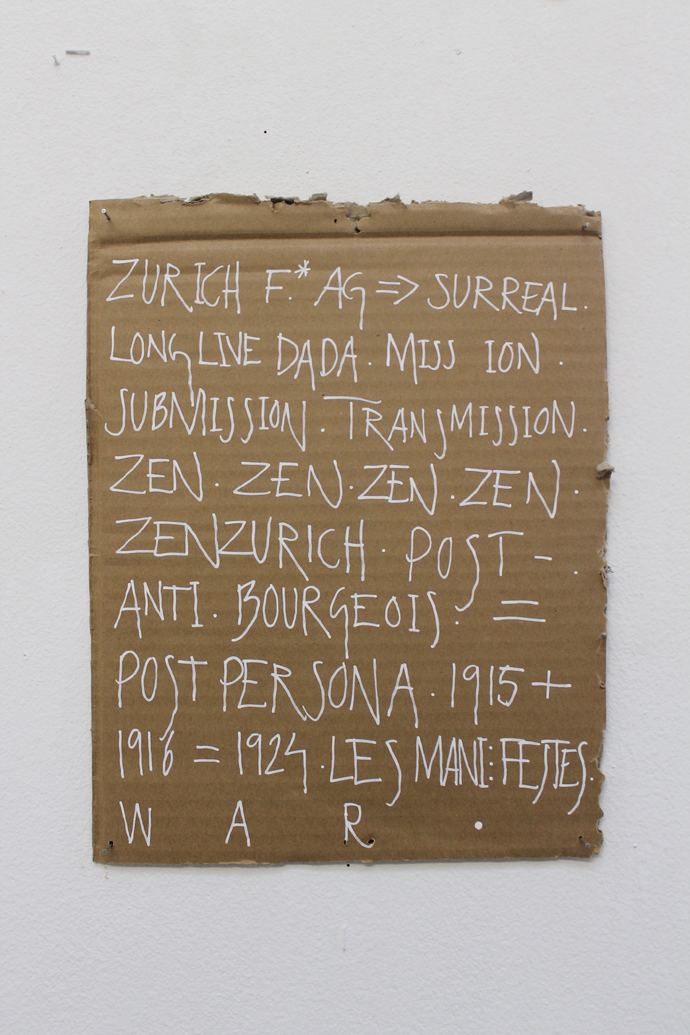 ZURICH F.* AG => SURREAL.
LONG LIVE DADA. MISS ION .
SUBMISSION. TRANSMISSION.
ZEN. ZEN. ZEN. ZEN.
ZENZURICH. POST-.
ANTI. BOURGEOIS. =
POST PERSONA. 1915+
1916 = 1924. LES MANI:FESTES.
W A R .